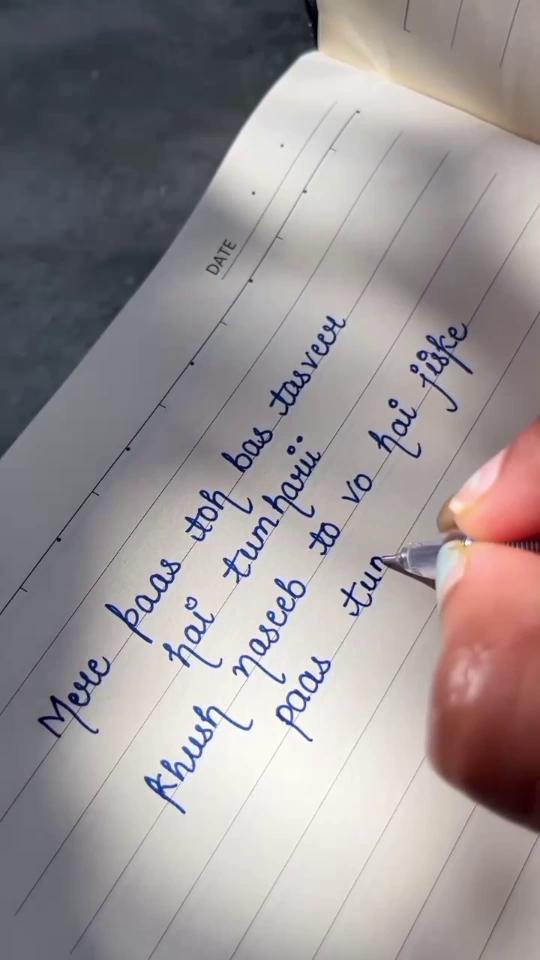 DATE
Mere paas toh bas tasveer
hai tumharii
Khush naseeb to vo hai jiske
paas tum